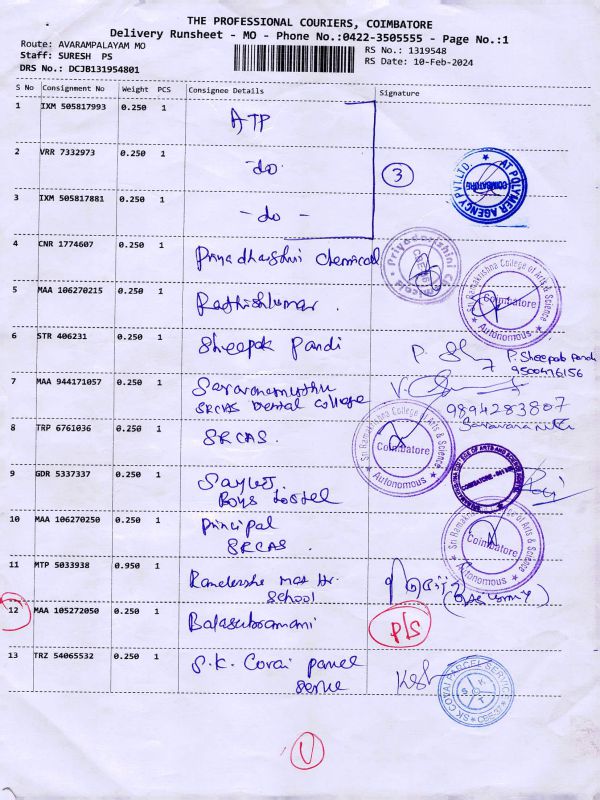 THE PROFESSIONAL COURIERS, COIMBATORE
Delivery Runsheet - MO - Phone No.:0422-3505555 - Page No.:1
Route: AVARAMPALAYAM MO
RS No.: 1319548
Staff: SURESH PS
RS Date: 10-Feb-2024
DRS No.: DCJB131954801
S No Consignment No Weight PCS Consignee Details Signature
1 IXM 505817993 0.250 1 ATP
2 VRR 7332973 0.250 1 -do-
3
AT POLYMER AGENCY PVT.LTD. COIMBATORE
3 IXM 505817881 0.250 1 -do-
4 CNR 1774607 0.250 1 Priyadharshni Chemical
5 MAA 106270215 0.250 1 Rathishkumar.
Sri Ramakrishna College of Arts & Science Coimbatore Autonomous
6 STR 406231 0.250 1 Sheepak Pandi
P. Sheepak Pandi
9500476156
7 MAA 944171057 0.250 1 Saravanamuthu
SRCAS Dental College
9894283807
8 TRP 6761036 0.250 1 SRCAS.
Sri Ramakrishna College of Arts & Science Coimbatore Autonomous
9 GDR 5337337 0.250 1
Boys Hostel
10 MAA 106270250 0.250 1 Principal
SRCAS
Sri Ramakrishna College of Arts & Science Coimbatore Autonomous
11 MTP 5033938 0.950 1 Mat Hr.
School
12 MAA 105272050 0.250 1 Balasubramani
P/S
13 TRZ 54065532 0.250 1 S.K. Covai parcel
Serve
SK COVAI PARCEL SERVICE